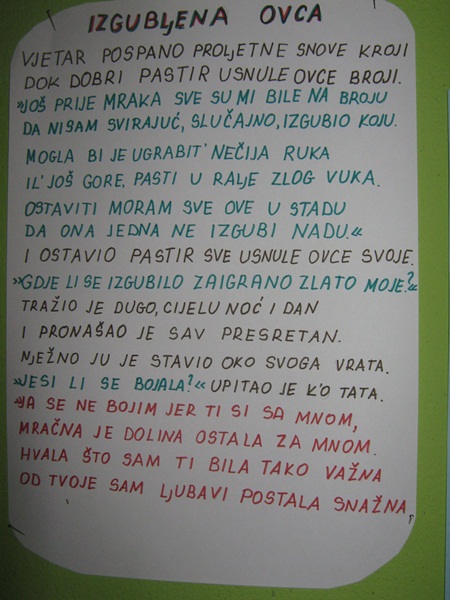 IZGUBLJENA OVCA
VJETAR POSPANO PROLJETNE SNOVE KROJI
DOK DOBRI PASTIR USNULE OVCE BROJI.
»JOŠ PRIJE MRAKA SVE SU MI BILE NA BROJU
DA NISAM SVIRAJUĆ, SLUČAJNO, IZGUBIO KOJU.
MOGLA BI JE UGRABIT' NEČIJA RUKA
IL' JOŠ GORE, PASTI U RALJE ZLOG VUKA.
OSTAVITI MORAM SVE OVE U STADU
DA ONA JEDNA NE IZGUBI NADU.«
I OSTAVIO PASTIR SVE USNULE OVCE SVOJE.
»GDJE LI SE IZGUBILO ZAIGRANO ZLATO MOJE?«
TRAŽIO JE DUGO, CIJELU NOĆ I DAN
I PRONAŠAO JE SAV PRESRETAN.
NJEŽNO JU JE STAVIO OKO SVOGA VRATA.
»JESI LI SE BOJALA?« UPITAO JE K'O TATA.
»JA SE NE BOJIM JER TI SI SA MNOM,
MRAČNA JE DOLINA OSTALA ZA MNOM.
HVALA ŠTO SAM TI BILA TAKO VAŽNA
OD TVOJE SAM LJUBAVI POSTALA SNAŽNA